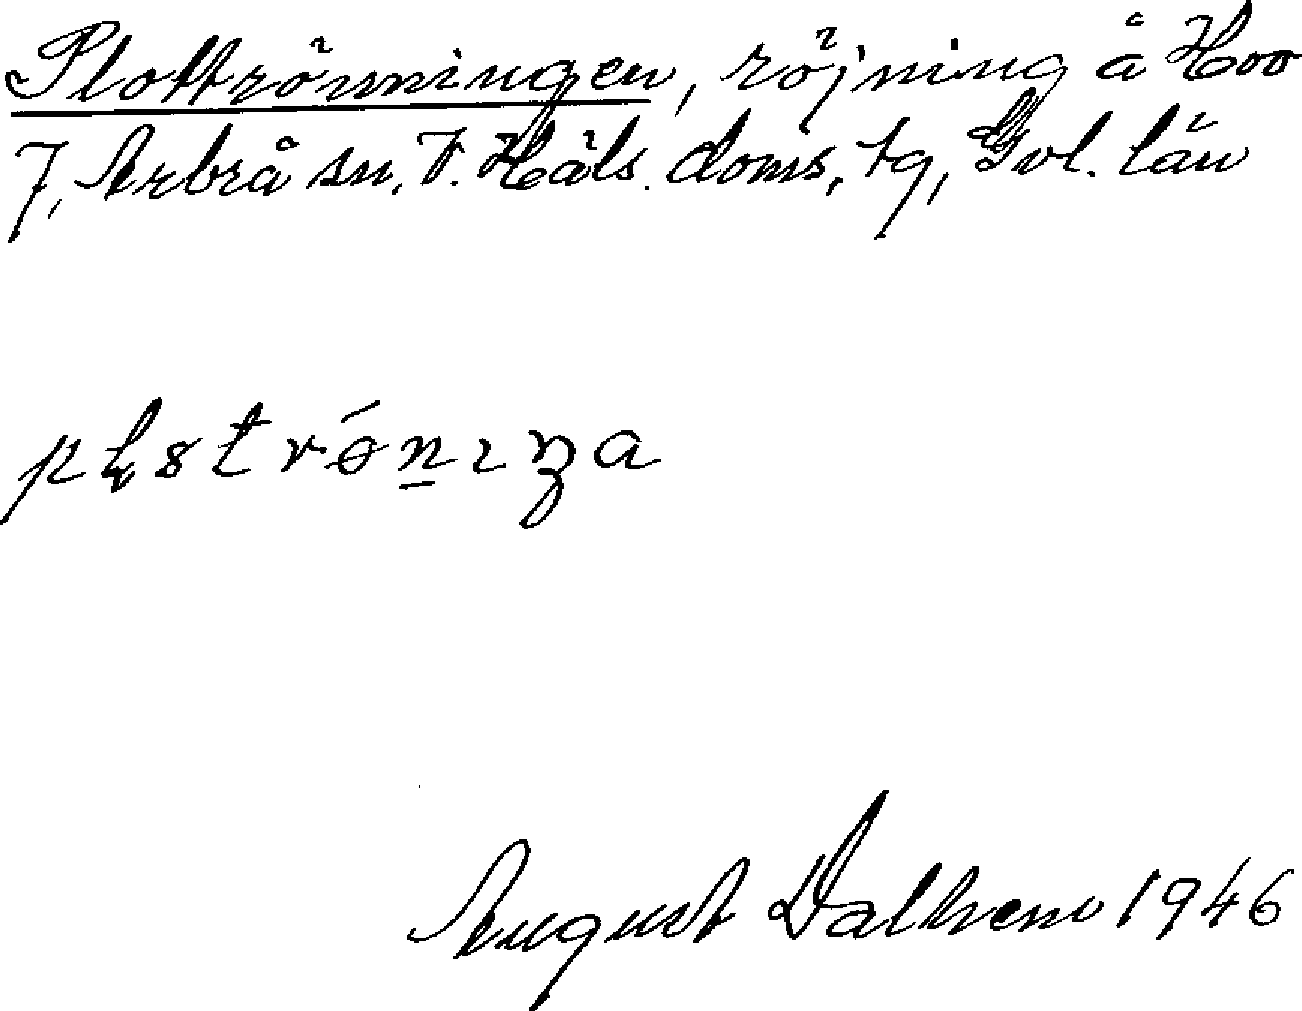 Plottrönningen, röjning å Hoo
7, Arbrå sn. V. Häls. doms. tg, Gvl. län
August Dalhem 1946